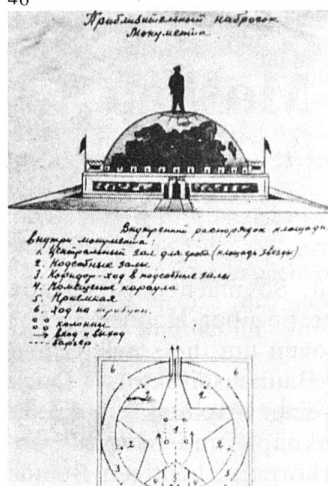 46
Приблизительный набросок
Монумента
Внутренний распорядок площади
внутри монумента:
1. Центральный зал для гроба (площадь звезды)
2. Подсобные залы
3. Коридор-ход в подсобные залы
4. Помещение караула
5. Приемная
6. Ход на трибуны.
колонны
вход и выход
барьер
6
6
2
2
1
2
2
3
3
4
5
4